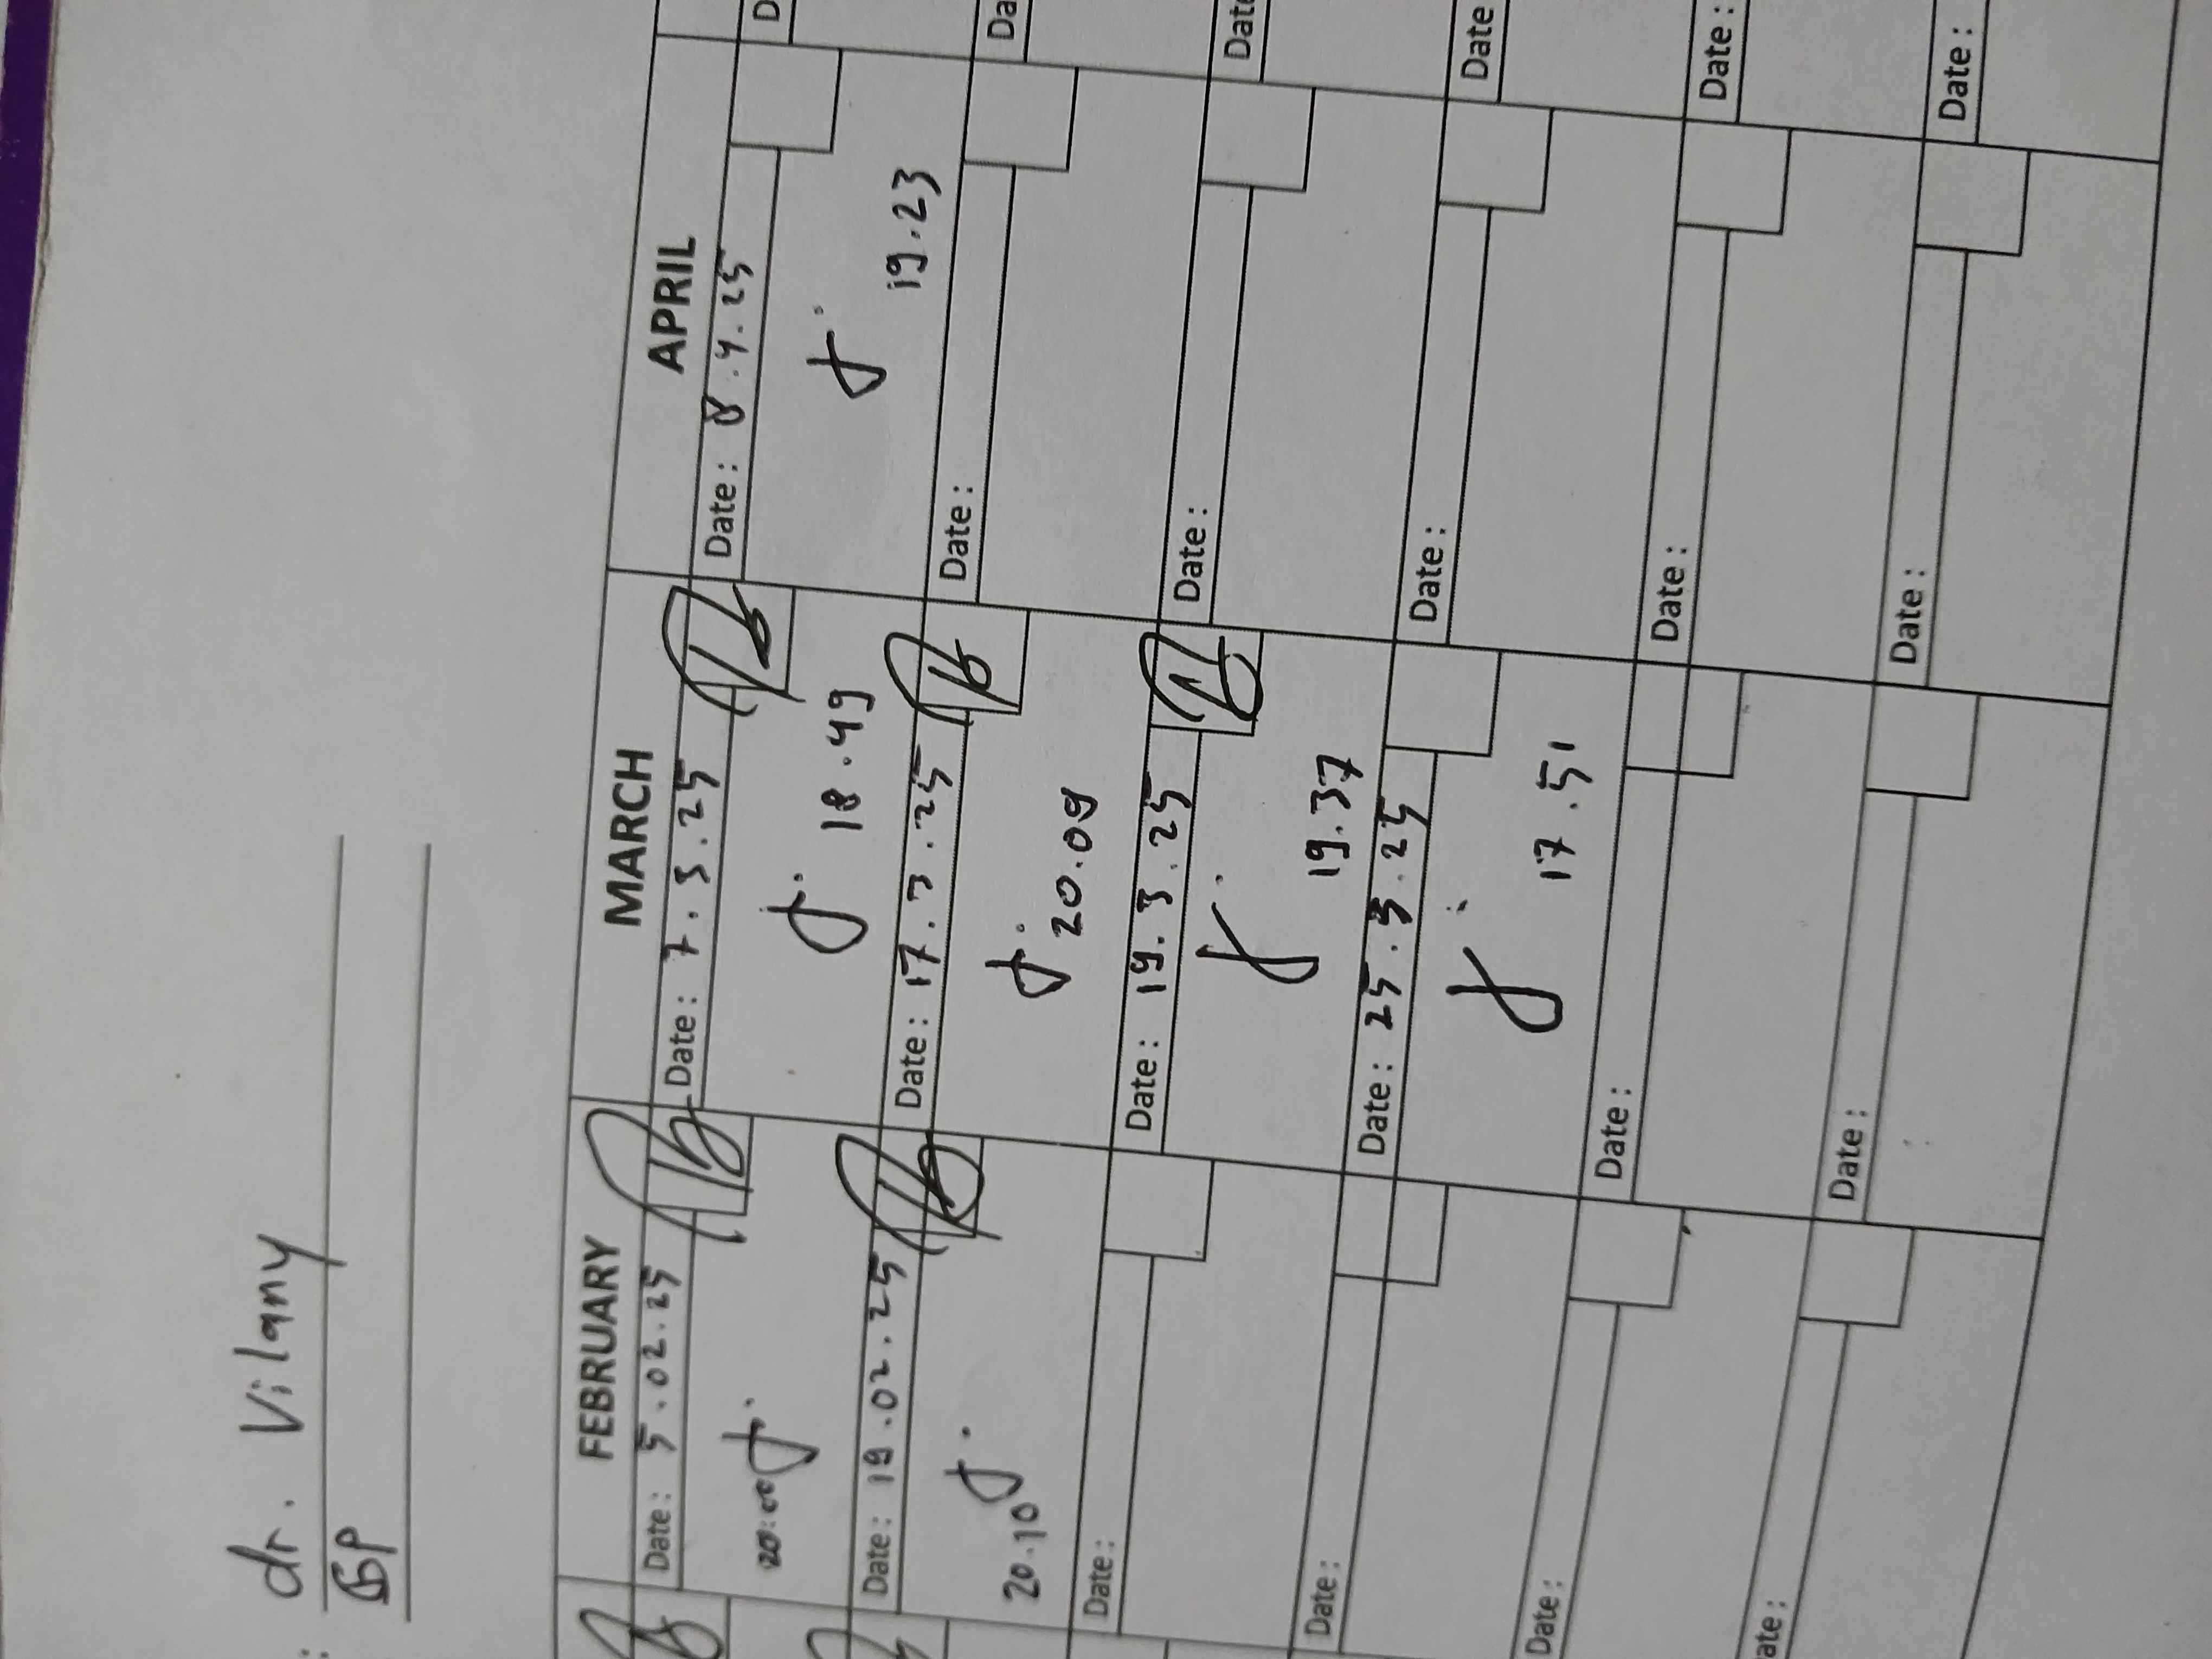 : dr. Vilany
GP
FEBRUARY MARCH APRIL
Date: 5.02.25 Date: 7.3.25 Date: 8.4.25 D
20:00 18.49 19.23
Date: 19.02.25 Date: 17.3.25 Date: Da
20.10 20.09
Date: Date: 19.3.25 Date: Date
19.37
Date: Date: 25.3.25 Date: Date
17.51
Date: Date: Date: Date:
ate: Date: Date: Date: